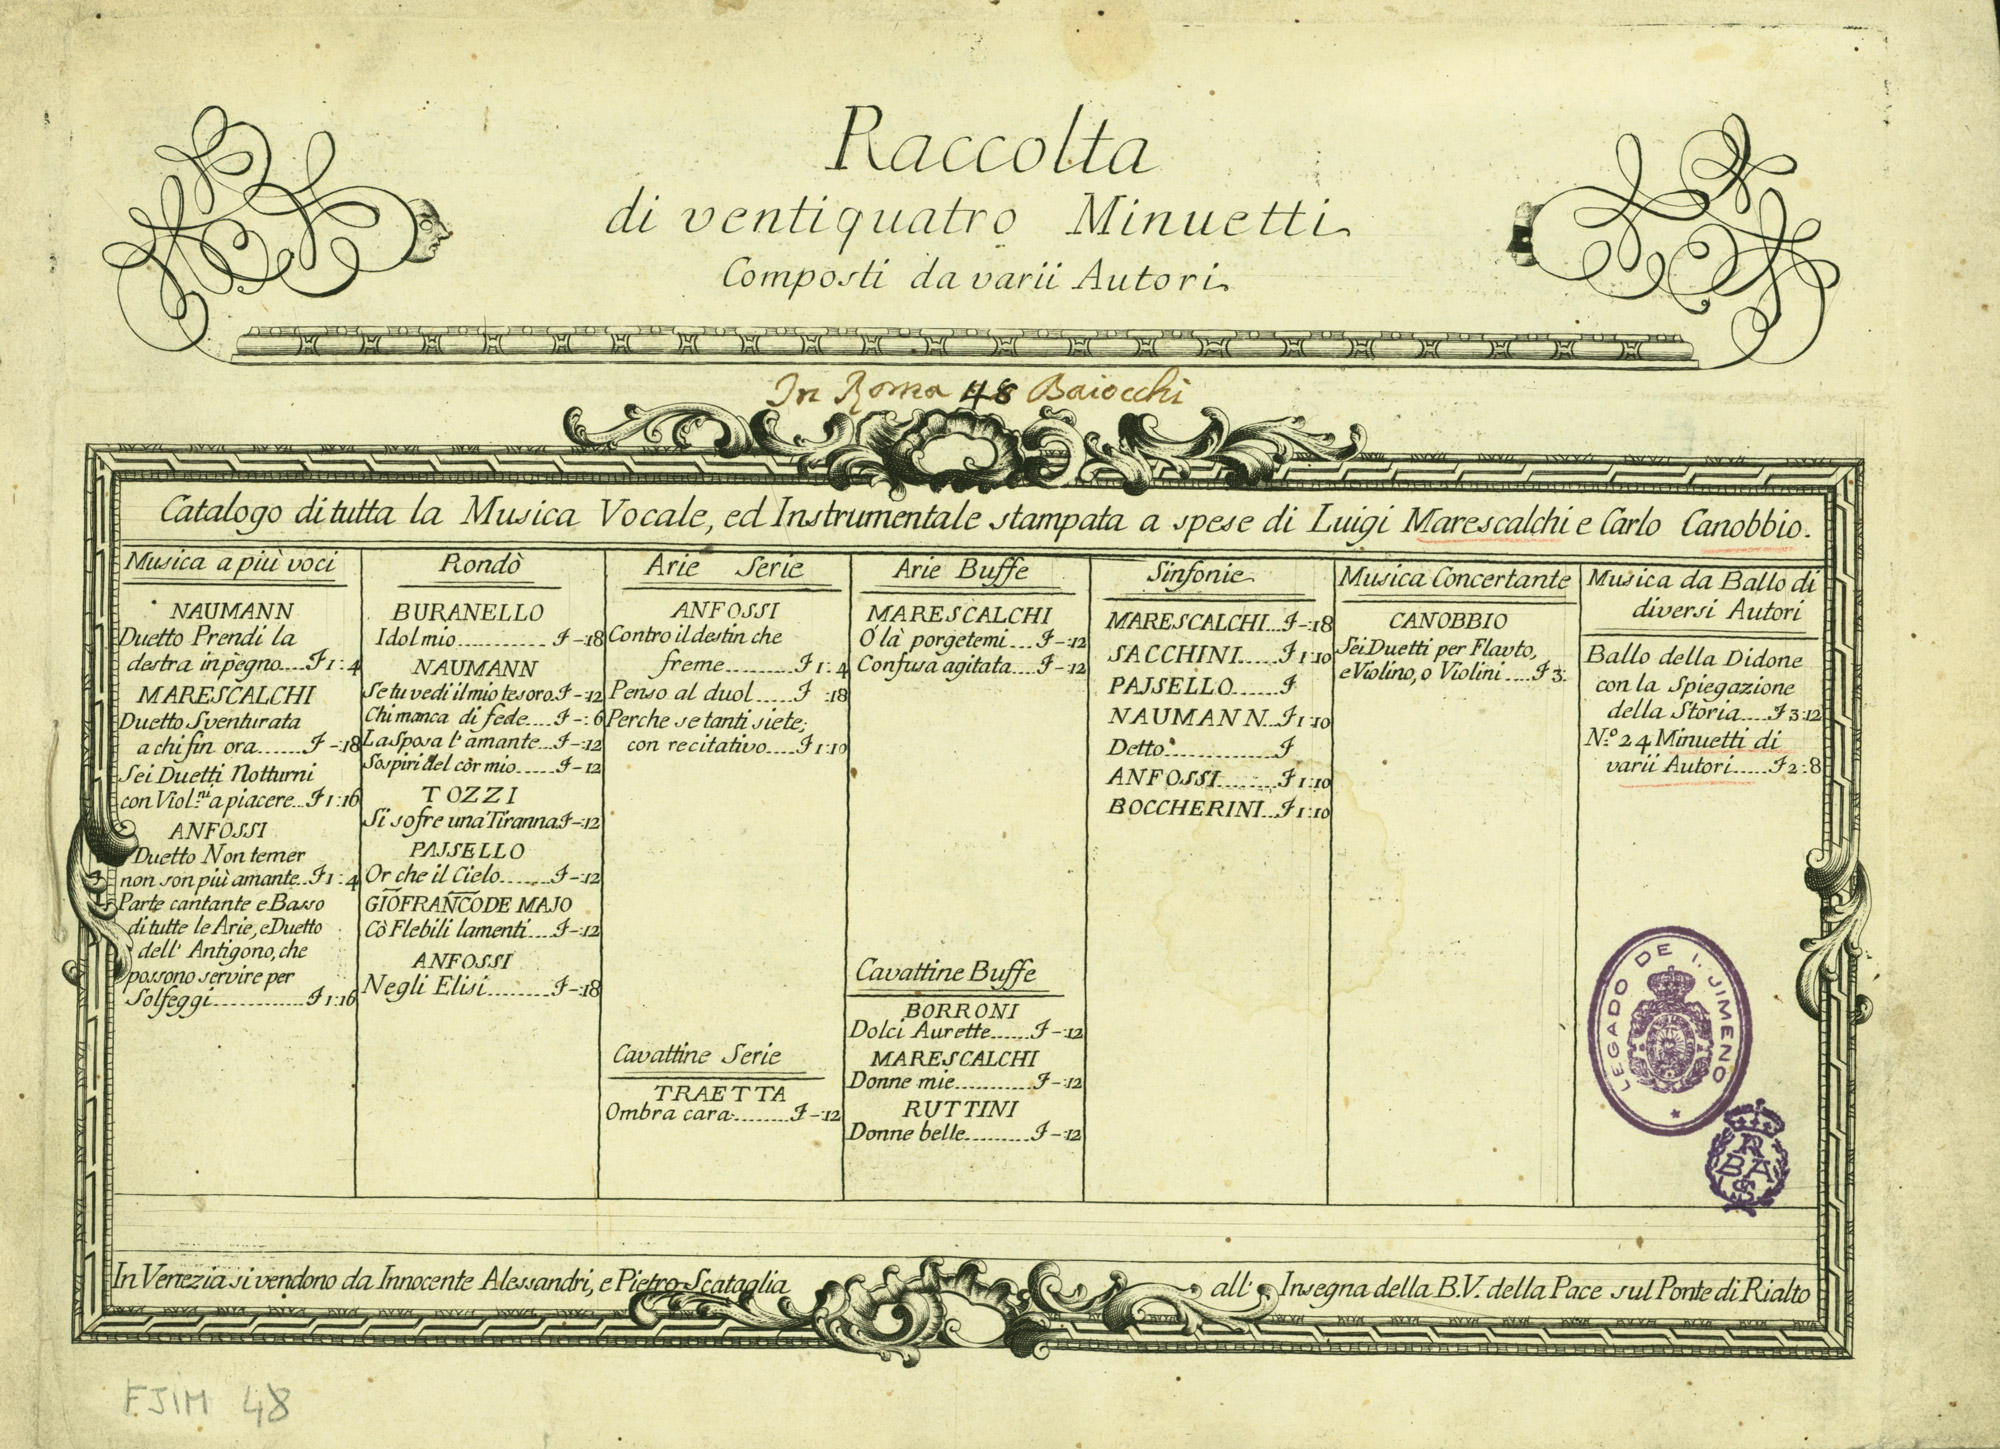 Raccolta
di ventiquatro Minuetti
Composti da varii Autori.
In Roma 48 Baiocchi
Catalogo di tutta la Musica Vocale, ed Instrumentale stampata a spese di Luigi Marescalchi e Carlo Canobbio.
Musica a più voci
NAUMANN
Duetto Prendi la
destra in pegno....₣ 1:4
MARESCALCHI
Duetto Sventurata
a chi fin ora.......₣ -:18
Sei Duetti Notturni
con Viol.ni a piacere...₣ 1:16
ANFOSSI
Duetto Non temer
non son più amante...₣ 1:4
Parte cantante e Basso
di tutte le Arie, e Duetto
dell' Antigono, che
possono servire per
Solfeggi..............₣ 1:16
Rondò
BURANELLO
Idol mio............₣ -:18
NAUMANN
Se tu vedi il mio tesoro.₣ -:12
Chi manca di fede....₣ -:6
La Sposa l' amante...₣ -:12
Sospiri del còr mio.....₣ -:12
TOZZI
Si sofre una Tiranna ₣ -:12
PAJSELLO
Or che il Cielo.......₣ -:12
GIO FRANCO DE MAJO
Cò Flebili lamenti....₣ -:12
ANFOSSI
Negli Elisi.........₣ -:18
Arie Serie
ANFOSSI
Contro il destin che
freme.........₣ 1:4
Penso al duol.....₣ :18
Perche se tanti siete;
con recitativo.....₣ 1:10
Cavattine Serie
TRAETTA
Ombra cara.........₣ -:12
Arie Buffe
MARESCALCHI
O là porgetemi....₣ -:12
Confusa agitata....₣ -:12
Cavattine Buffe
BORRONI
Dolci Aurette......₣ -:12
MARESCALCHI
Donne mie...........₣ -:12
RUTTINI
Donne belle..........₣ -:12
Sinfonie
MARESCALCHI...₣ -:18
SACCHINI.....₣ 1:10
PAJSELLO.......₣
NAUMANN...₣ 1:10
Detto..............₣
ANFOSSI........₣ 1:10
BOCCHERINI...₣ 1:10
Musica Concertante
CANOBBIO
Sei Duetti per Flauto,
e Violino, o Violini.....₣ 3:
Musica da Ballo di
diversi Autori
Ballo della Didone
con la Spiegazione
della Storia.....₣ 3:12
N.º 24 Minuetti di
varii Autori.....₣ 2:8
LEGADO DE I. JIMENO
R
BA
S
In Venezia si vendono da Innocente Alessandri, e Pietro Scataglia all' Insegna della B.V. della Pace sul Ponte di Rialto
FJIM 48